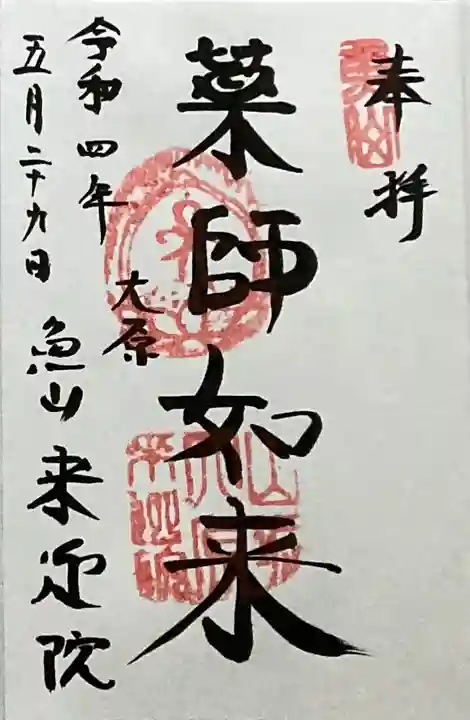 奉拝
薬師如来
大原
魚山来迎院
令和四年
五月二十九日
魚山